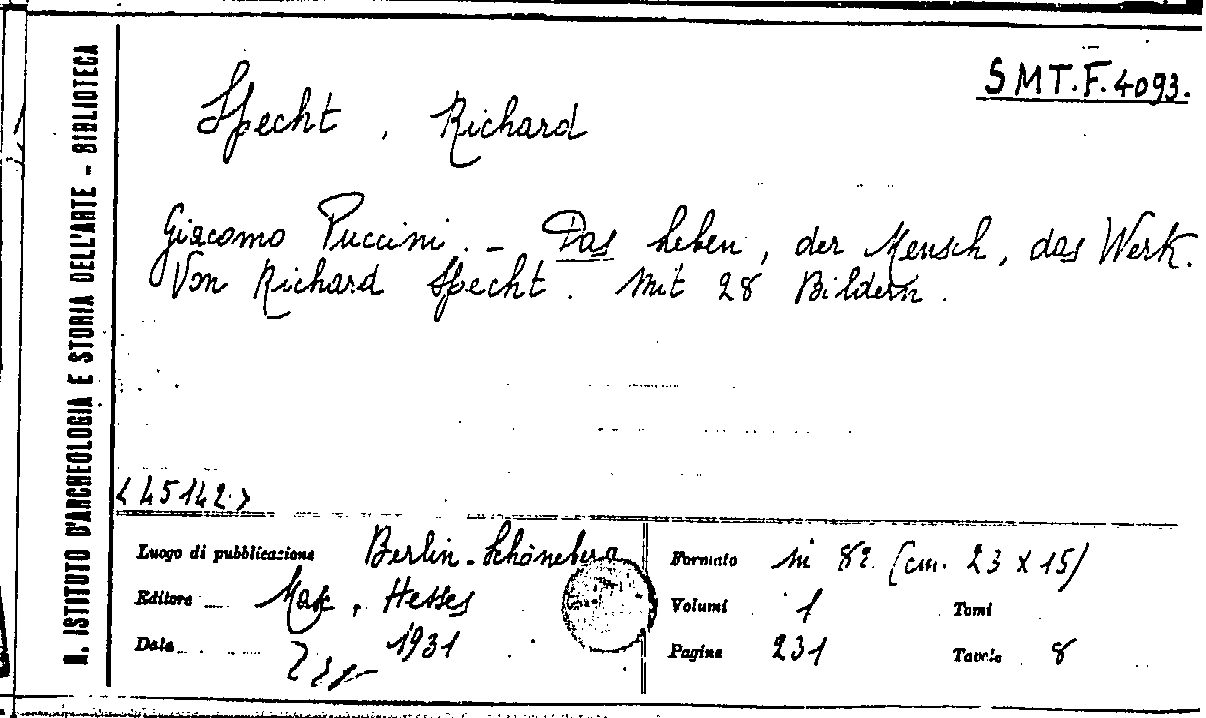 R. ISTITUTO D'ARCHEOLOGIA E STORIA DELL'ARTE - BIBLIOTECA
SMT.F.4093.
Specht, Richard
Giacomo Puccini. - Das Leben, der Mensch, das Werk.
Von Richard Specht. Mit 28 Bildern.
<45142>
Luogo di pubblicazione Berlin-Schöneberg
Editore Max, Hesses
Data 1931
Formato in 8º (cm. 23 x 15)
Volumi 1 Tomi
Pagine 231 Tavole 8